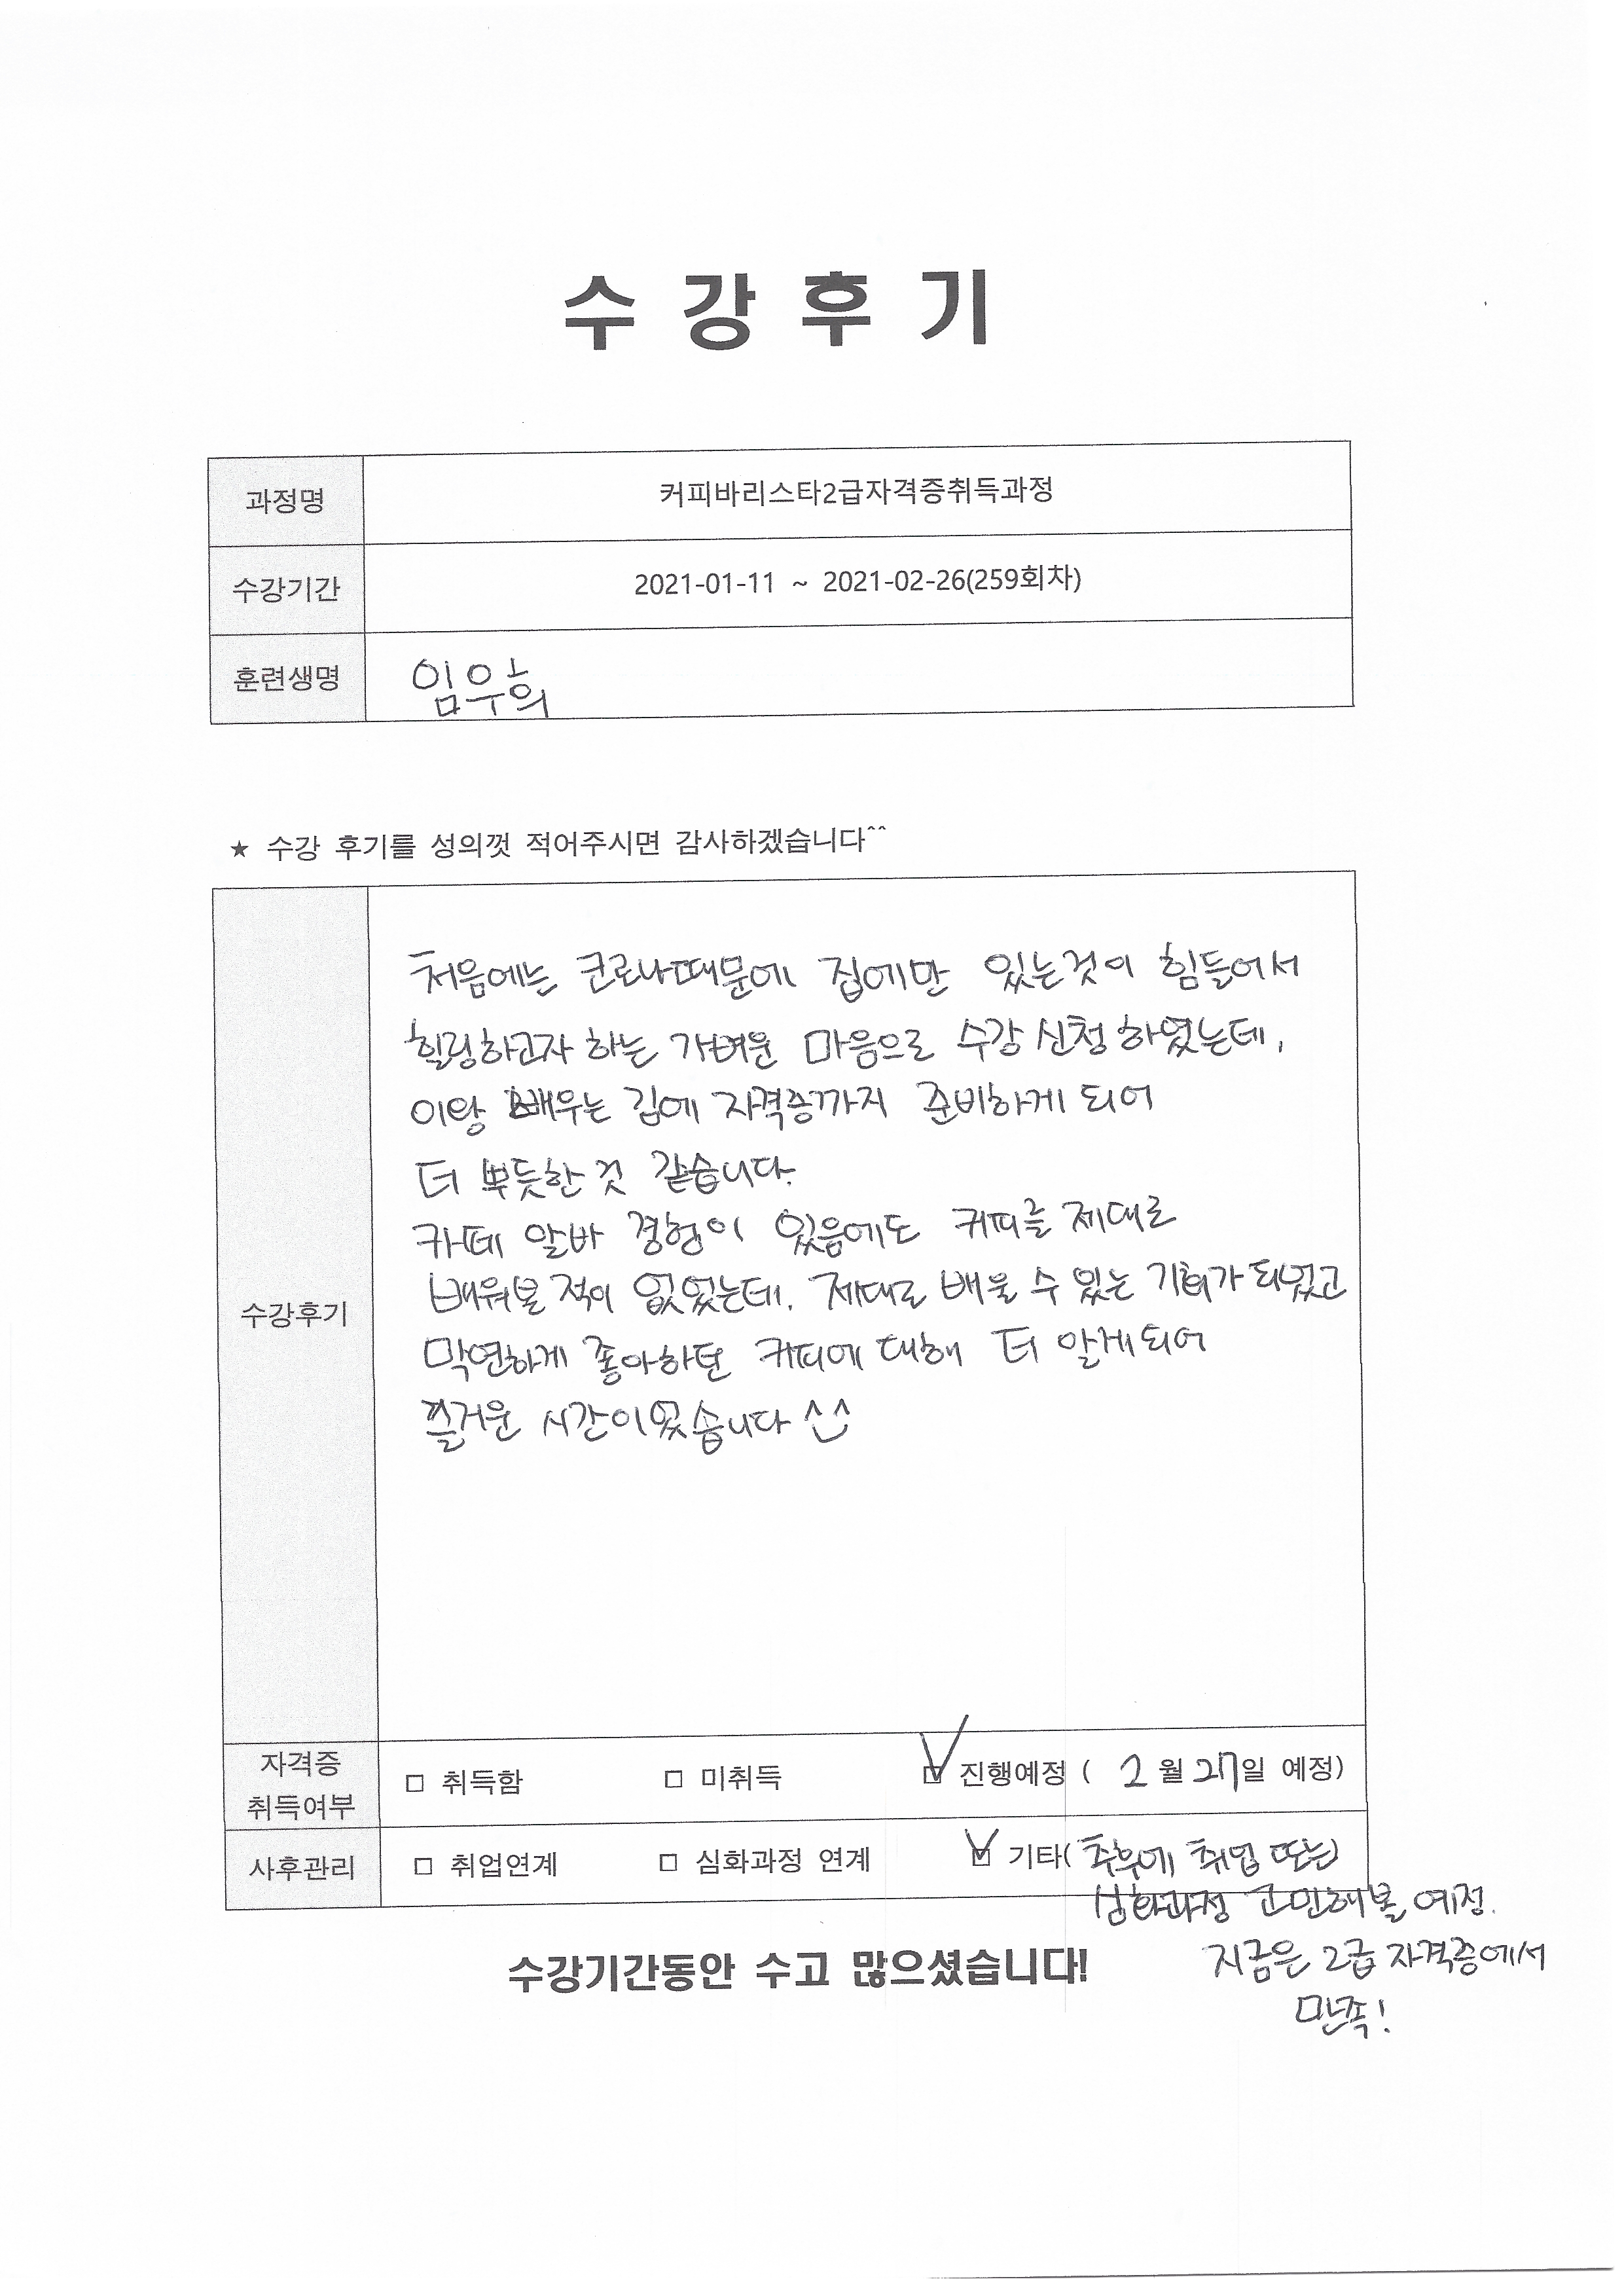 수강후기
과정명 커피바리스타2급자격증취득과정
수강기간 2021-01-11 ~ 2021-02-26(259회차)
훈련생명 임우희
★ 수강 후기를 성의껏 적어주시면 감사하겠습니다^^
수강후기
처음에는 코로나때문에 집에만 있는것이 힘들어서
힐링하고자 하는 가벼운 마음으로 수강 신청하였는데,
이왕 배우는 김에 자격증까지 준비하게 되어
더 뿌듯한 것 같습니다.
카페 알바 경험이 있음에도 커피를 제대로
배워볼 적이 없었는데, 제대로 배울 수 있는 기회가 되었고
막연하게 좋아하던 커피에 대해 더 알게되어
즐거운 시간이었습니다 ^^
자격증
취득여부
□ 취득함 □ 미취득 ☑ 진행예정 ( 2월 27일 예정)
사후관리 □ 취업연계 □ 심화과정 연계 ☑ 기타( 추후에 취업 또는)
심화과정 고민해볼 예정.
지금은 2급 자격증에서
만족!
수강기간동안 수고 많으셨습니다!